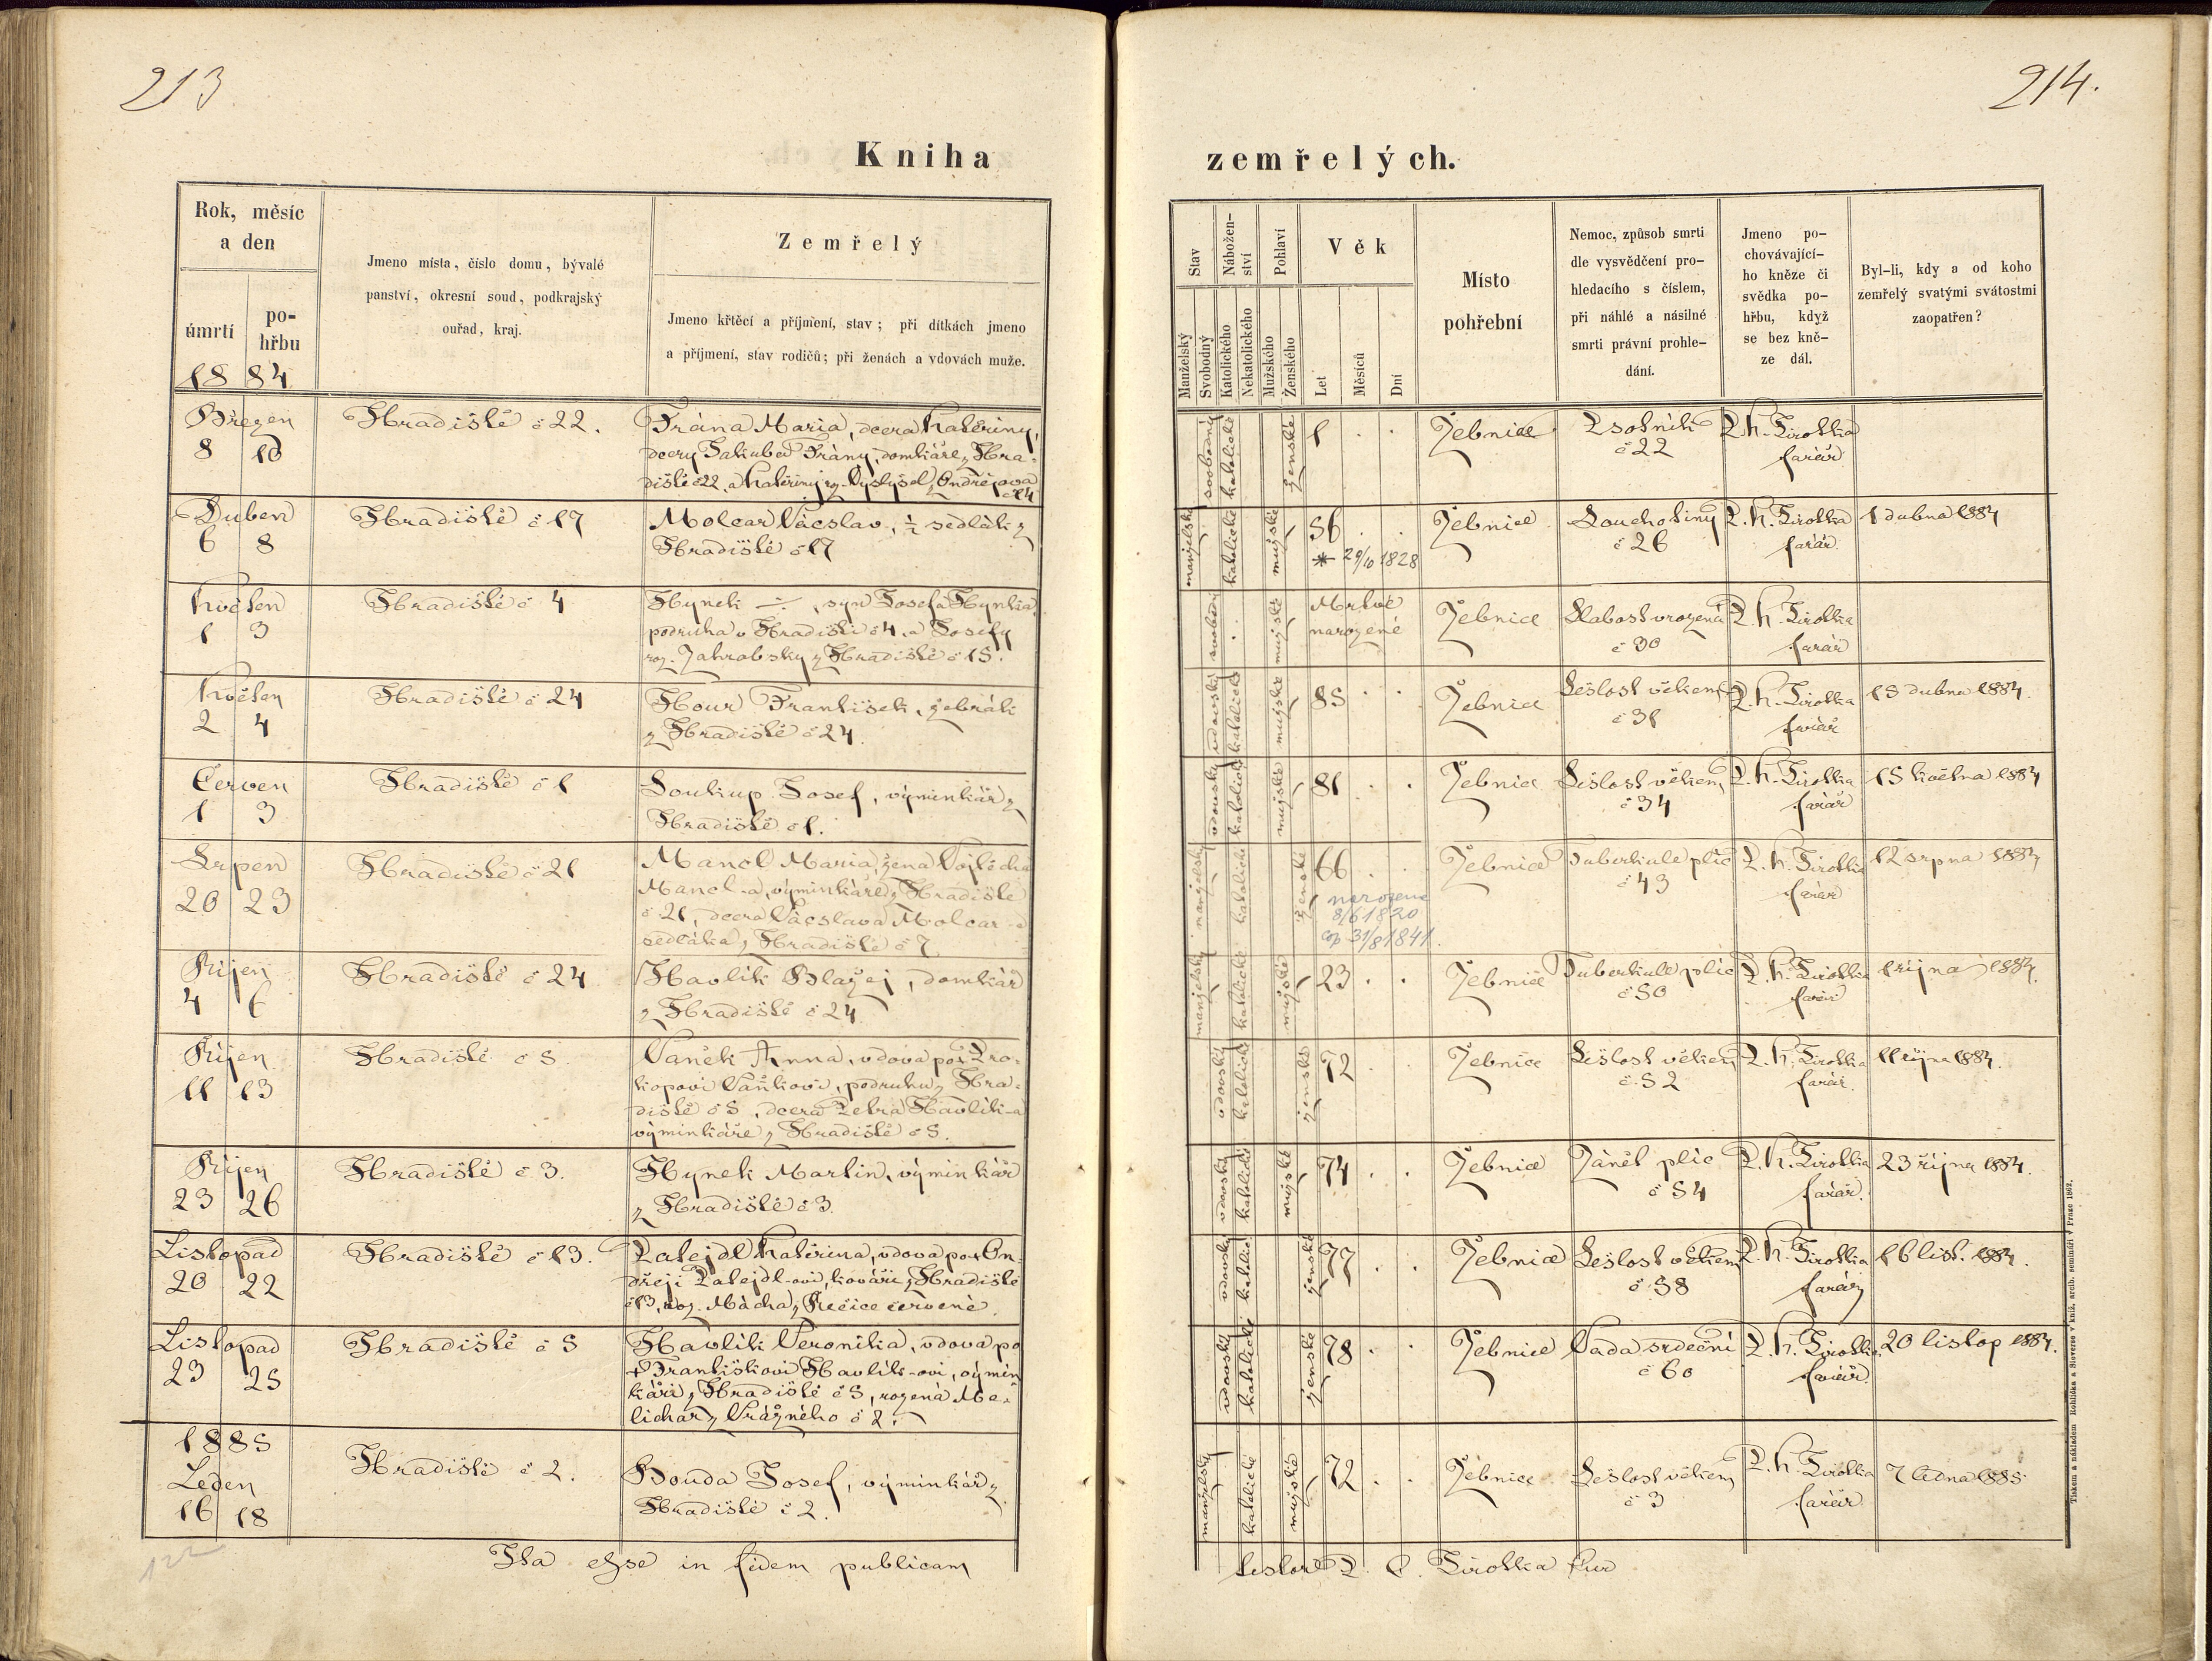 213
214.
Kniha
zemřelých.
Rok, měsíc
a den
úmrtí
po-
hřbu
1884
Jmeno místa, číslo domu, bývalé
panství, okresní soud, podkrajský
ouřad, kraj.
Zemřelý
Jmeno křtěcí a příjmení, stav; při dítkách jmeno
a příjmení, stav rodičů; při ženách a vdovách muže.
Stav
Manželský
Svobodný
Nábožen-
ství
Katolického
Nekatolického
Pohlaví
Mužského
Ženského
Věk
Let
Měsíců
Dní
Místo
pohřební
Nemoc, způsob smrti
dle vysvědčení pro-
hledacího s číslem,
při náhlé a násilné
smrti právní prohle-
dání.
Jmeno po-
chovávající-
ho kněze či
svědka po-
hřbu, když
se bez kně-
ze dál.
Byl-li, kdy a od koho
zemřelý svatými svátostmi
zaopatřen?
Březen
8 10
Hradiště č 22.
Frána Maria, dcera Kateřiny,
dcery Jakuba Frány, domkáře z Hra-
diště č 22, a Kateřiny roz. Vyslyšel z Ondřejova
č 14
svobodný katolické ženské 1 . .
Žebnice
Psotník
č 22
P. K. Jirotka
farář
Duben
6 8
Hradiště č 17
Molcar Václav, ½ sedlák z
Hradiště č 17
manželský katolické mužské 56 . .
* 29/10 1828
Žebnice
Souchotiny
č 26
P. K. Jirotka
farář.
1 dubna 1884
Květen
1 3
Hradiště č 4
Hynek -:-, syn Josefa Hynka
podruha v Hradišti č 4, a Josefy
roz. Zahrobsky z Hradiště č 15.
svobodný . mužské Mrtvě
narozené
Žebnice
Slabost vrozená
č 30
P. K. Jirotka
farář
Květen
2 4
Hradiště č 24
Hour František, žebrák
z Hradiště č 24.
vdovský katolické mužské 85 . .
Žebnice
Sešlost věkem
č 31
P. K. Jirotka
farář
15 dubna 1884.
Červen
1 3
Hradiště č 1
Soukup Josef, výminkář z
Hradiště č 1.
vdovský katolické mužské 81 . .
Žebnice
Sešlost věkem
č 34
P. K. Jirotka
farář
15 května 1884
Srpen
20 23
Hradiště č 21
Mancl Maria, žena Vojtěcha
Mancl-a, výminkáře z Hradiště
č 21, dcera Václava Molcar-a
sedláka z Hradiště č 7
manželský katolické ženské 66 . .
narozena
8/6 1820
cop 31/8 1841.
Žebnice
Tuberkule plic
č 43
P. K. Jirotka
farář
12 srpna 1884
Říjen
4 6
Hradiště č 24
Havlík Blažej, domkář
z Hradiště č 24
manželský katolické mužské 23 . .
Žebnice
Tuberkule plic
č 50
P. K. Jirotka
farář
1 října 1884.
Říjen
11 13
Hradiště č 5.
Vaněk Anna, vdova po † Pro-
kopovi Vaňkovi, podruhu z Hra-
diště č 5, dcera Petra Havlík-a
výminkáře z Hradiště č 5.
vdovský katolické ženské 72 . .
Žebnice
Sešlost věkem
č. 52
P. K. Jirotka
farář.
11 října 1884.
Říjen
23 26
Hradiště č 3.
Hynek Martin, výminkář
z Hradiště č 3.
vdovský katolické mužské 74 . .
Žebnice
Zánět plic
č 54
P. K. Jirotka
farář.
23 října 1884.
Listopad
20 22
Hradiště č 13.
Patejdl Kateřina, vdova po † On-
dřeji Patejdl-ovi, kováři z Hradiště
č 13, roz. Mácha z Řečice červené.
vdovský katolické ženské 77 . .
Žebnice
Sešlost věkem
č 58
P. K. Jirotka
farář
16 list. 1884.
Listopad
23 25
Hradiště č 5
Havlík Veronika, vdova po
† Františkovi Havlík-ovi, výmin-
káři z Hradiště č 5, rozená Me-
lichar z Vrážného č 2.
vdovský katolické ženské 78 . .
Žebnice
Vada srdeční
č 60
P. K. Jirotka
farář.
20 listop 1884.
1885
Leden
16 18
Hradiště č 2.
Bouda Josef, výminkář z
Hradiště č 2.
manželský katolické mužské 72 . .
Žebnice
Sešlost věkem
č 3
P. K. Jirotka
farář
7 ledna 1885
122
Ita esse in fidem publicam
testor P. C. Jirotka
Tiskem a nákladem Rohlíčka a Sieverse v kníž. arcib. semináři v Praze 1867.